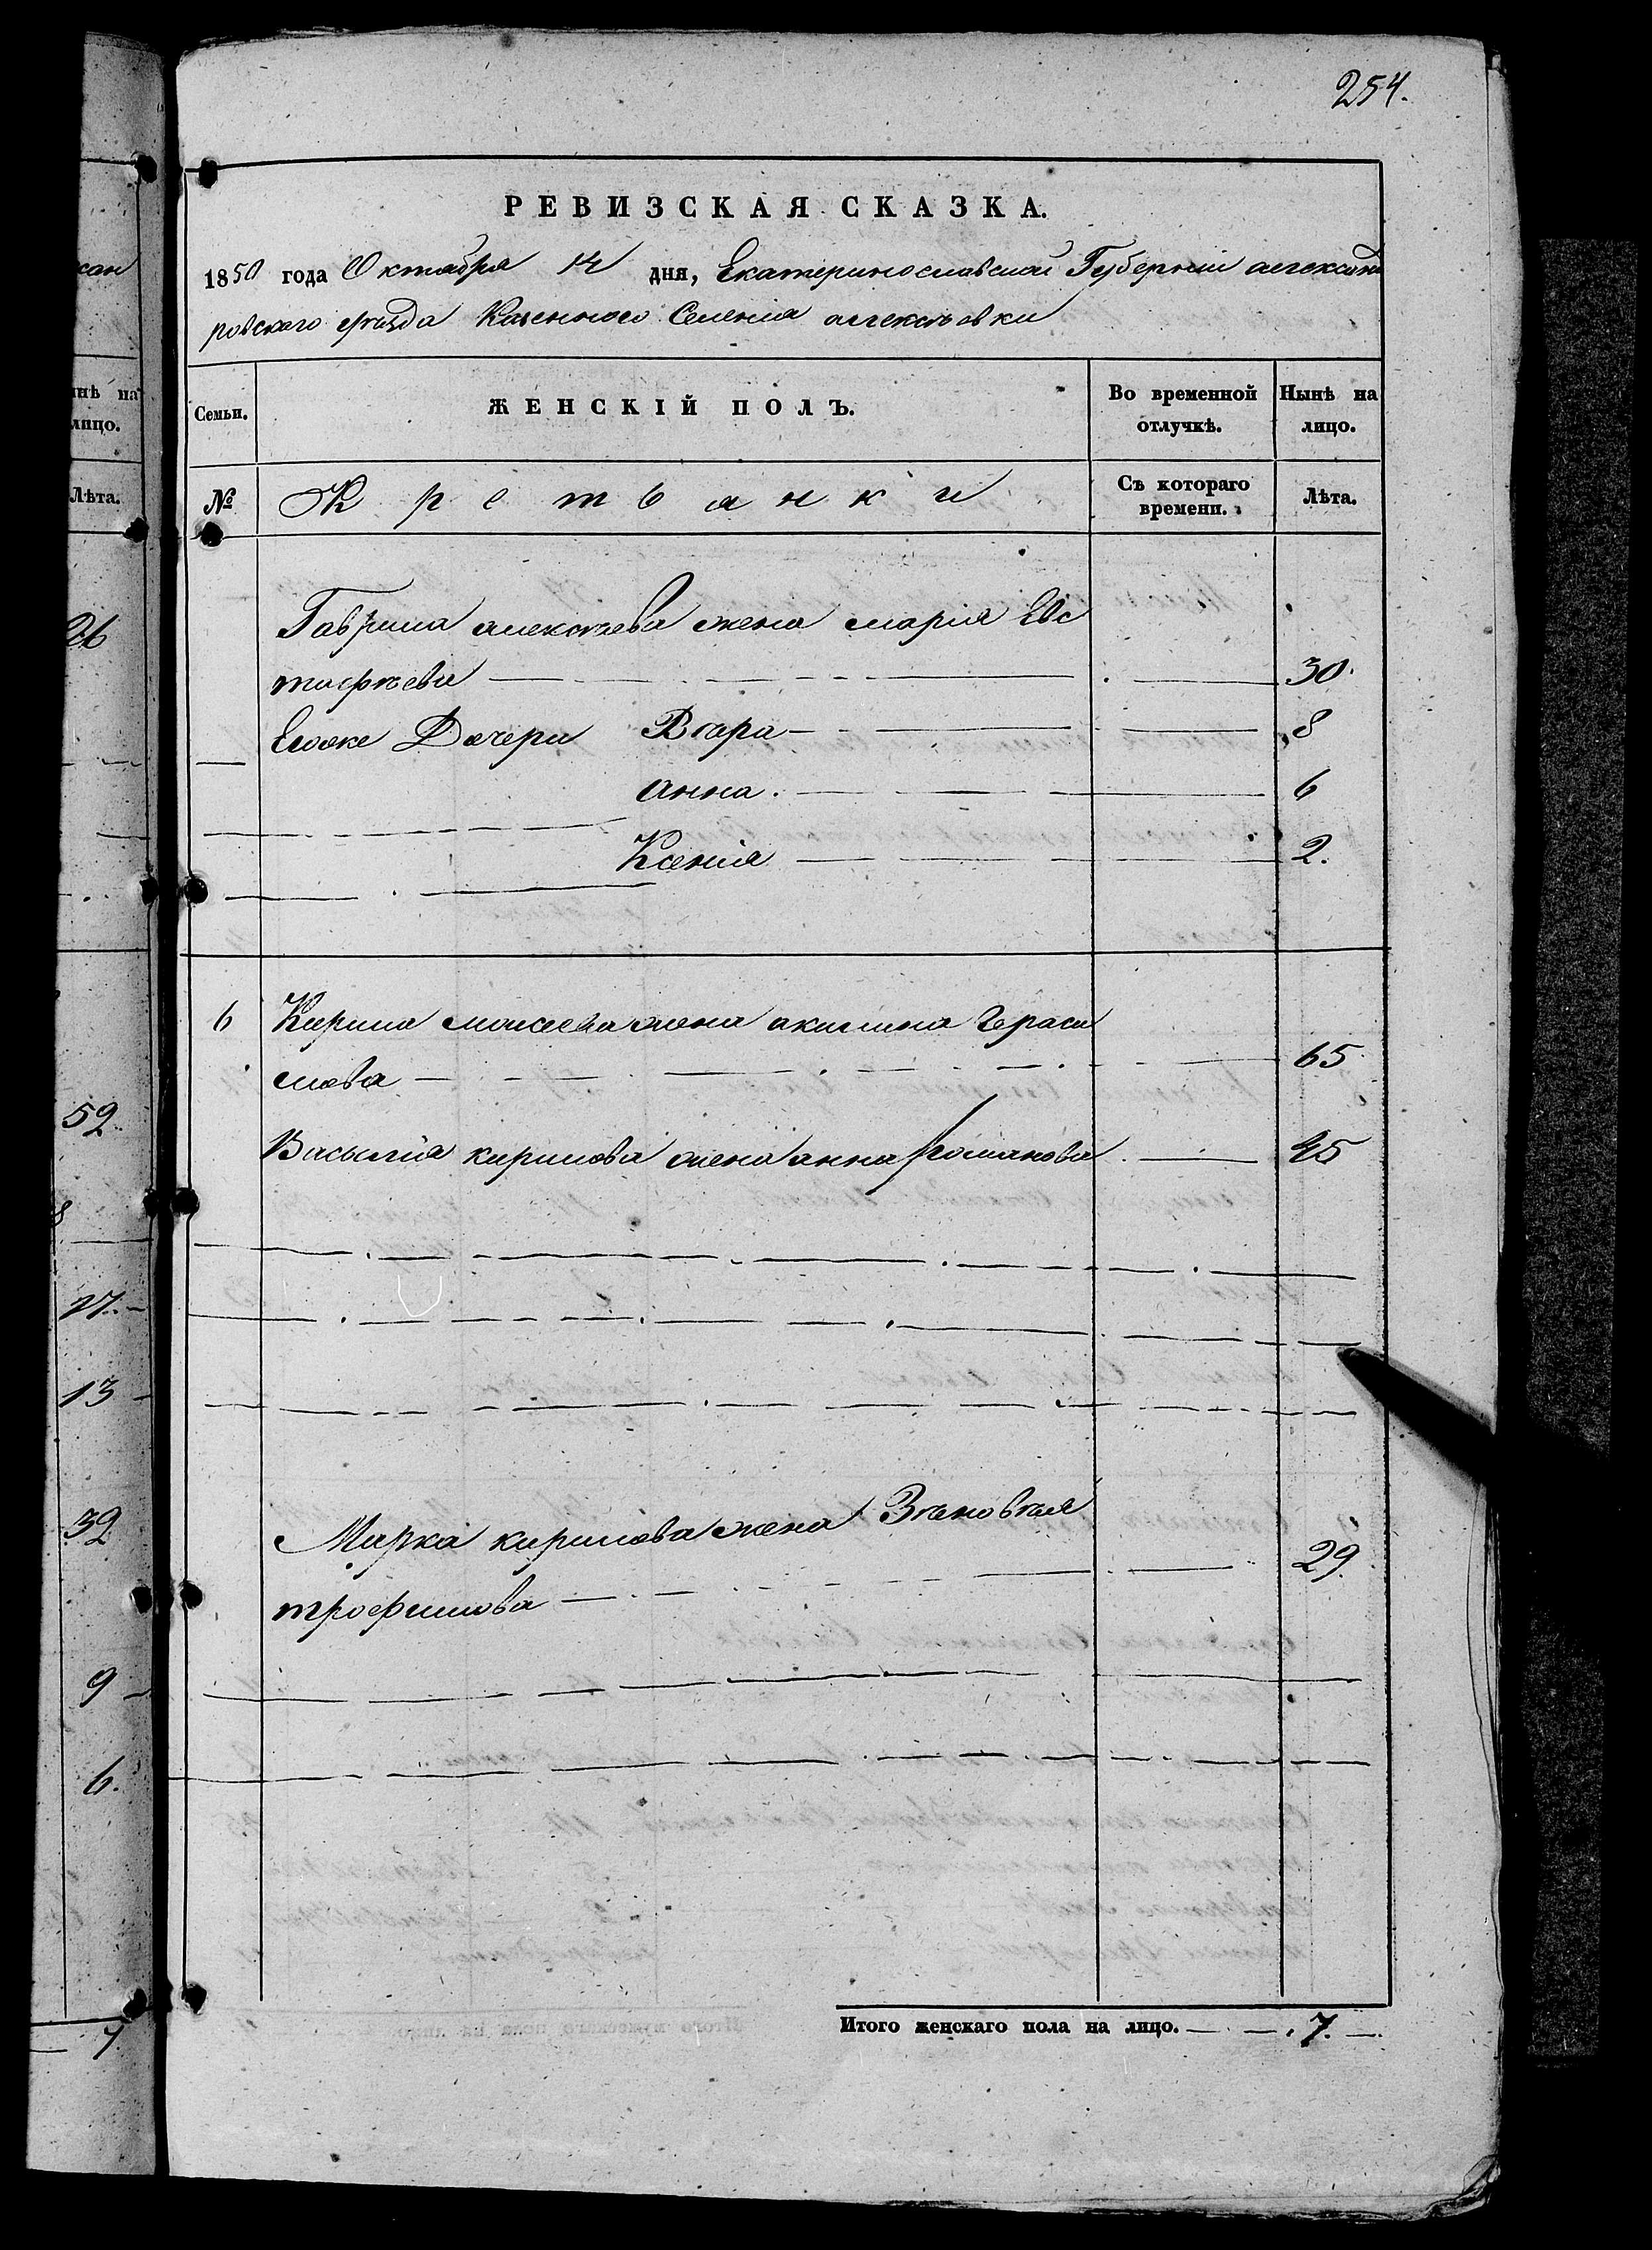 254.
РЕВИЗСКАЯ СКАЗКА.
1850 года Октября 14 дня, Екатеринославской Губерніи александ
ровского уѣзда Казенного Селенія алексѣевки
Семьи. ЖЕНСКІЙ ПОЛЪ. Во временной отлучкѣ. Нынѣ на лицо.
№ Крестьянки Съ котораго времени. Лѣта.
Гаврила алексѣева жена марія Евс
тифѣева 30.
Егоже Дочери Вѣра 8
анна. 6
Ксенія 2.
6 Кирила моисеева жена акилина Гераси
мова 65
Васылія кирилова жена анна Романова 45
Марка кирилова жена Зѣновѣя
трофимова 29.
Итого женскаго пола на лицо. 7.
сан
нѣ на
лицо.
Лѣта.
26
52
17.
13
32
9
6.
7